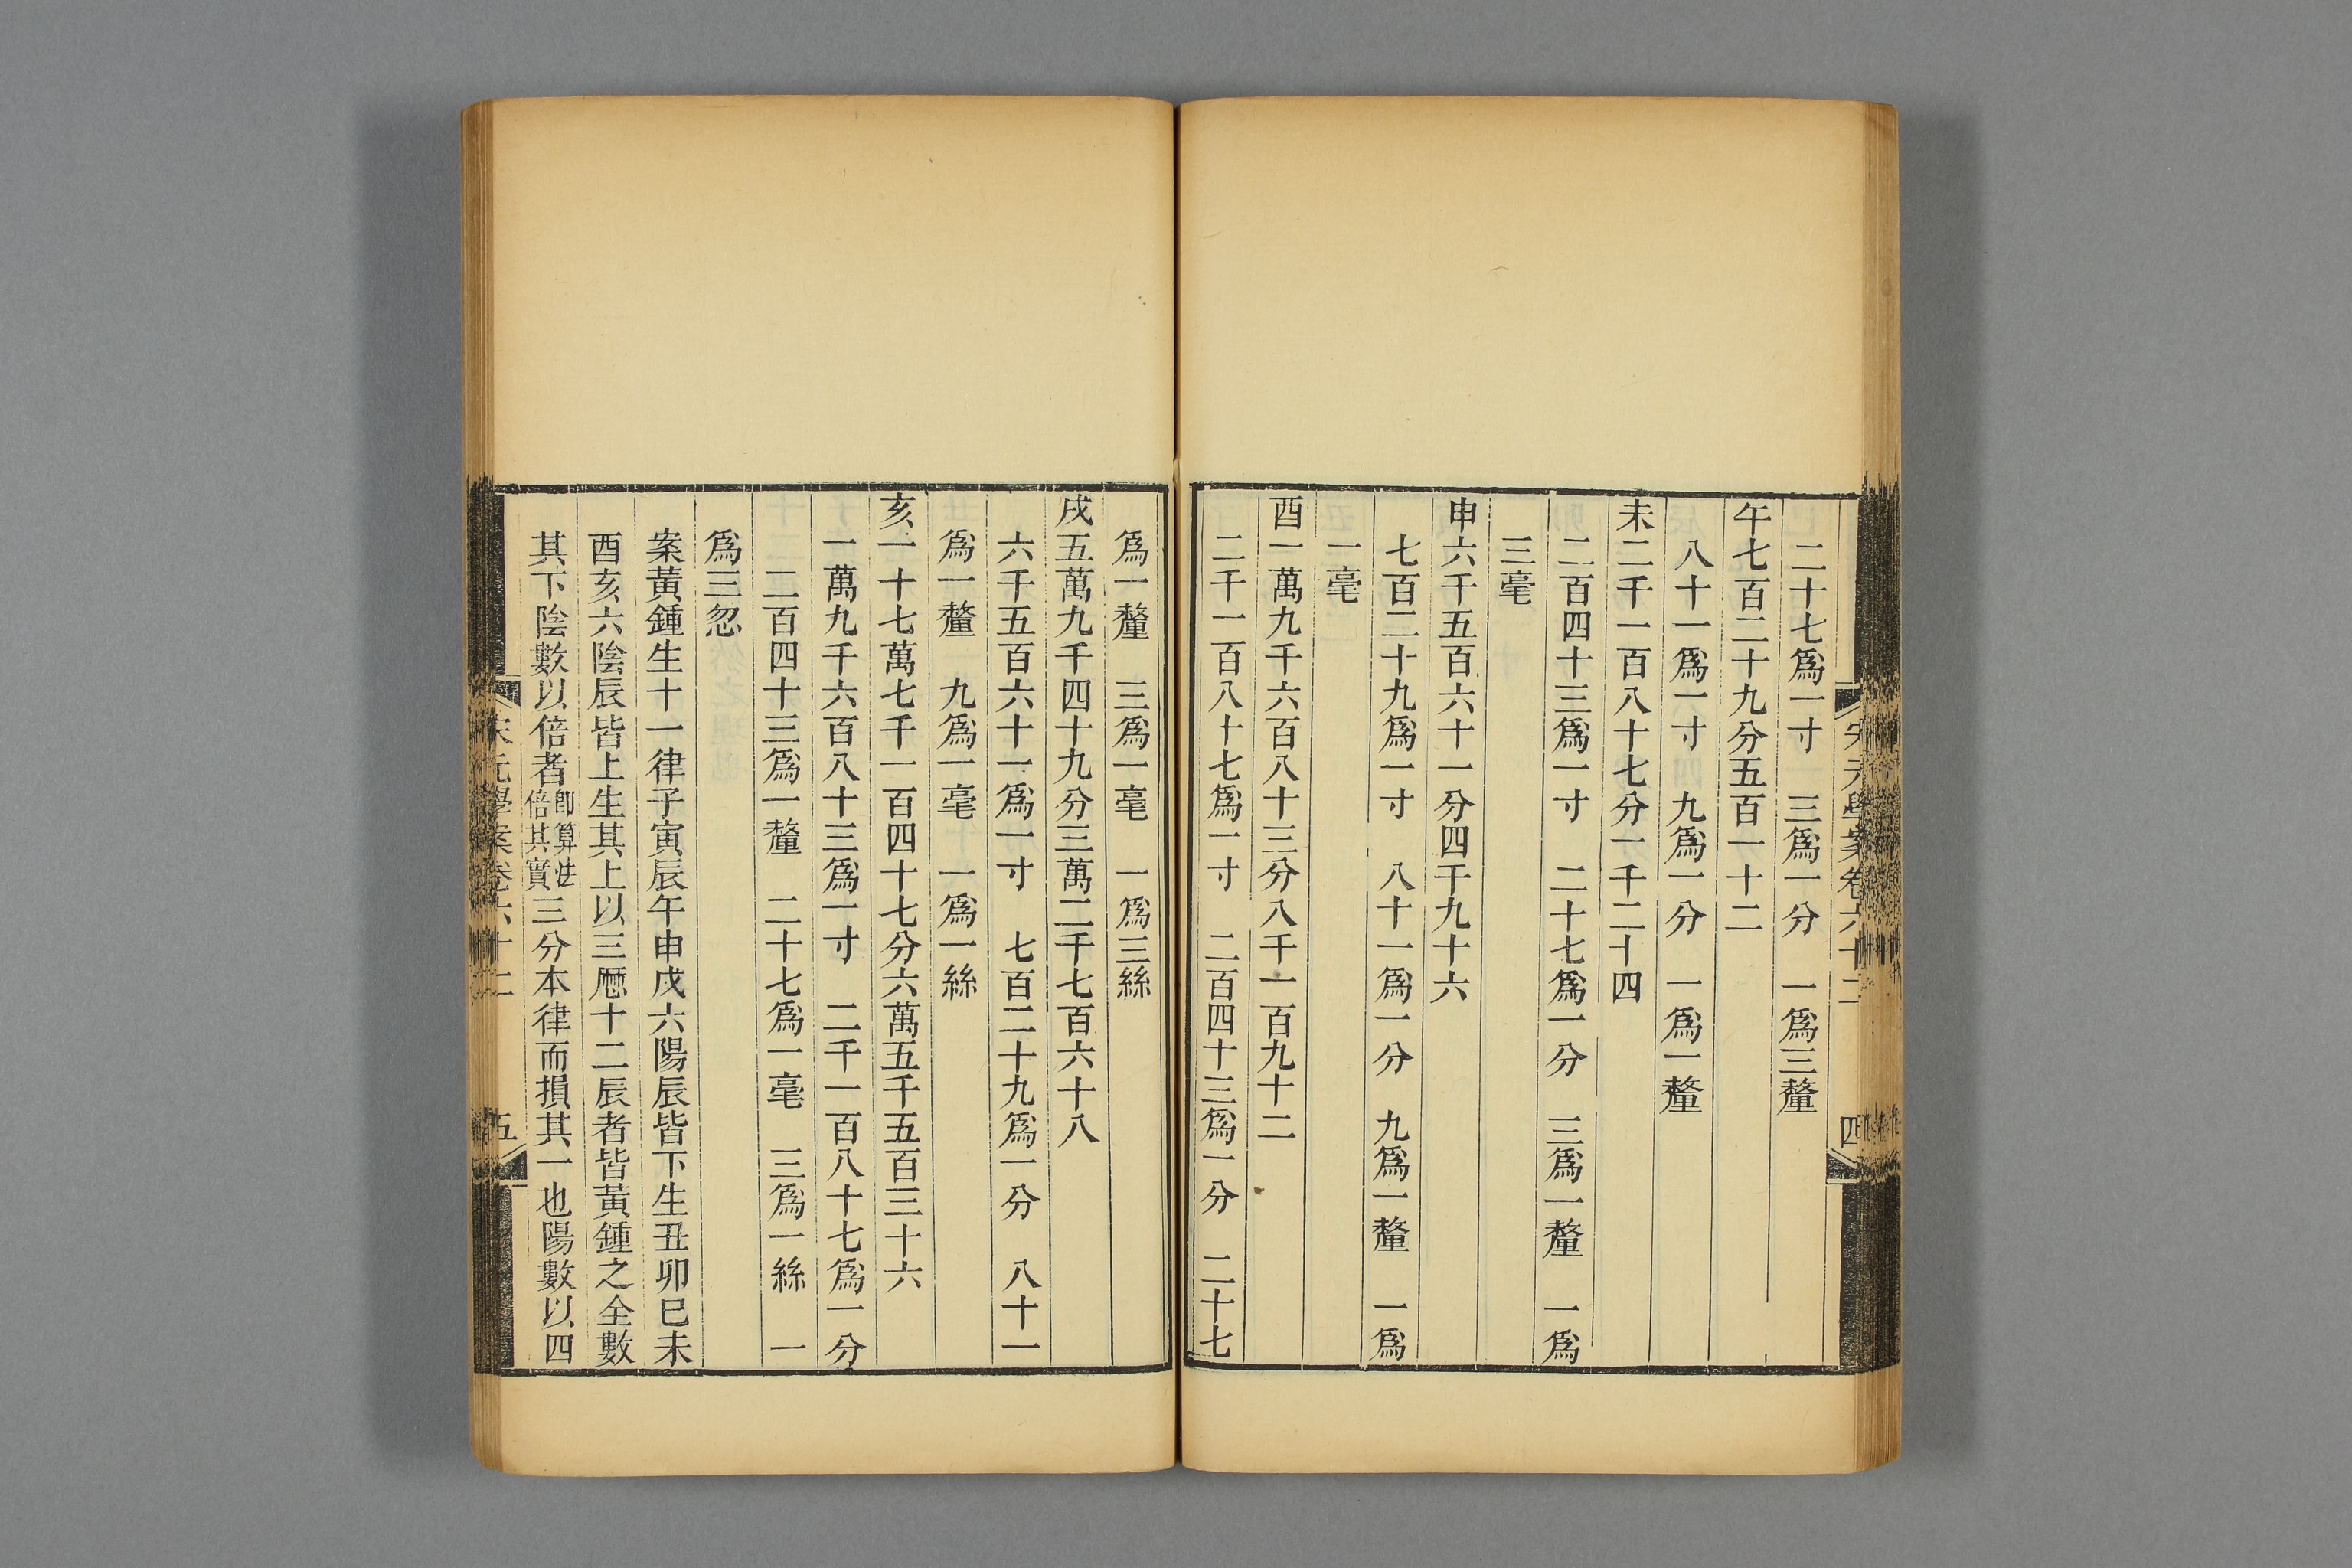 宋元學案卷六十二 四
二十七爲一寸 三爲一分 一爲三釐
午七百二十九分五百一十二
八十一爲一寸 九爲一分 一爲一釐
未二千一百八十七分一千二十四
二百四十三爲一寸 二十七爲一分 三爲一釐 一爲
三毫
申六千五百六十一分四千九十六
七百二十九爲一寸 八十一爲一分 九爲一釐 一爲
一毫
酉一萬九千六百八十三分八千一百九十二
二千一百八十七爲一寸 二百四十三爲一分 二十七
爲一釐 三爲一毫 一爲三絲
戌五萬九千四十九分三萬二千七百六十八
六千五百六十一爲一寸 七百二十九爲一分 八十一
爲一釐 九爲一毫 一爲一絲
亥一十七萬七千一百四十七分六萬五千五百三十六
一萬九千六百八十三爲一寸 二千一百八十七爲一分
二百四十三爲一釐 二十七爲一毫 三爲一絲 一
爲三忽
案黃鍾生十一律子寅辰午申戌六陽辰皆下生丑卯巳未
酉亥六陰辰皆上生其上以三歷十二辰者皆黃鍾之全數
其下陰數以倍者卽算法倍其實三分本律而損其一也陽數以四
宋元學案卷六十二 五